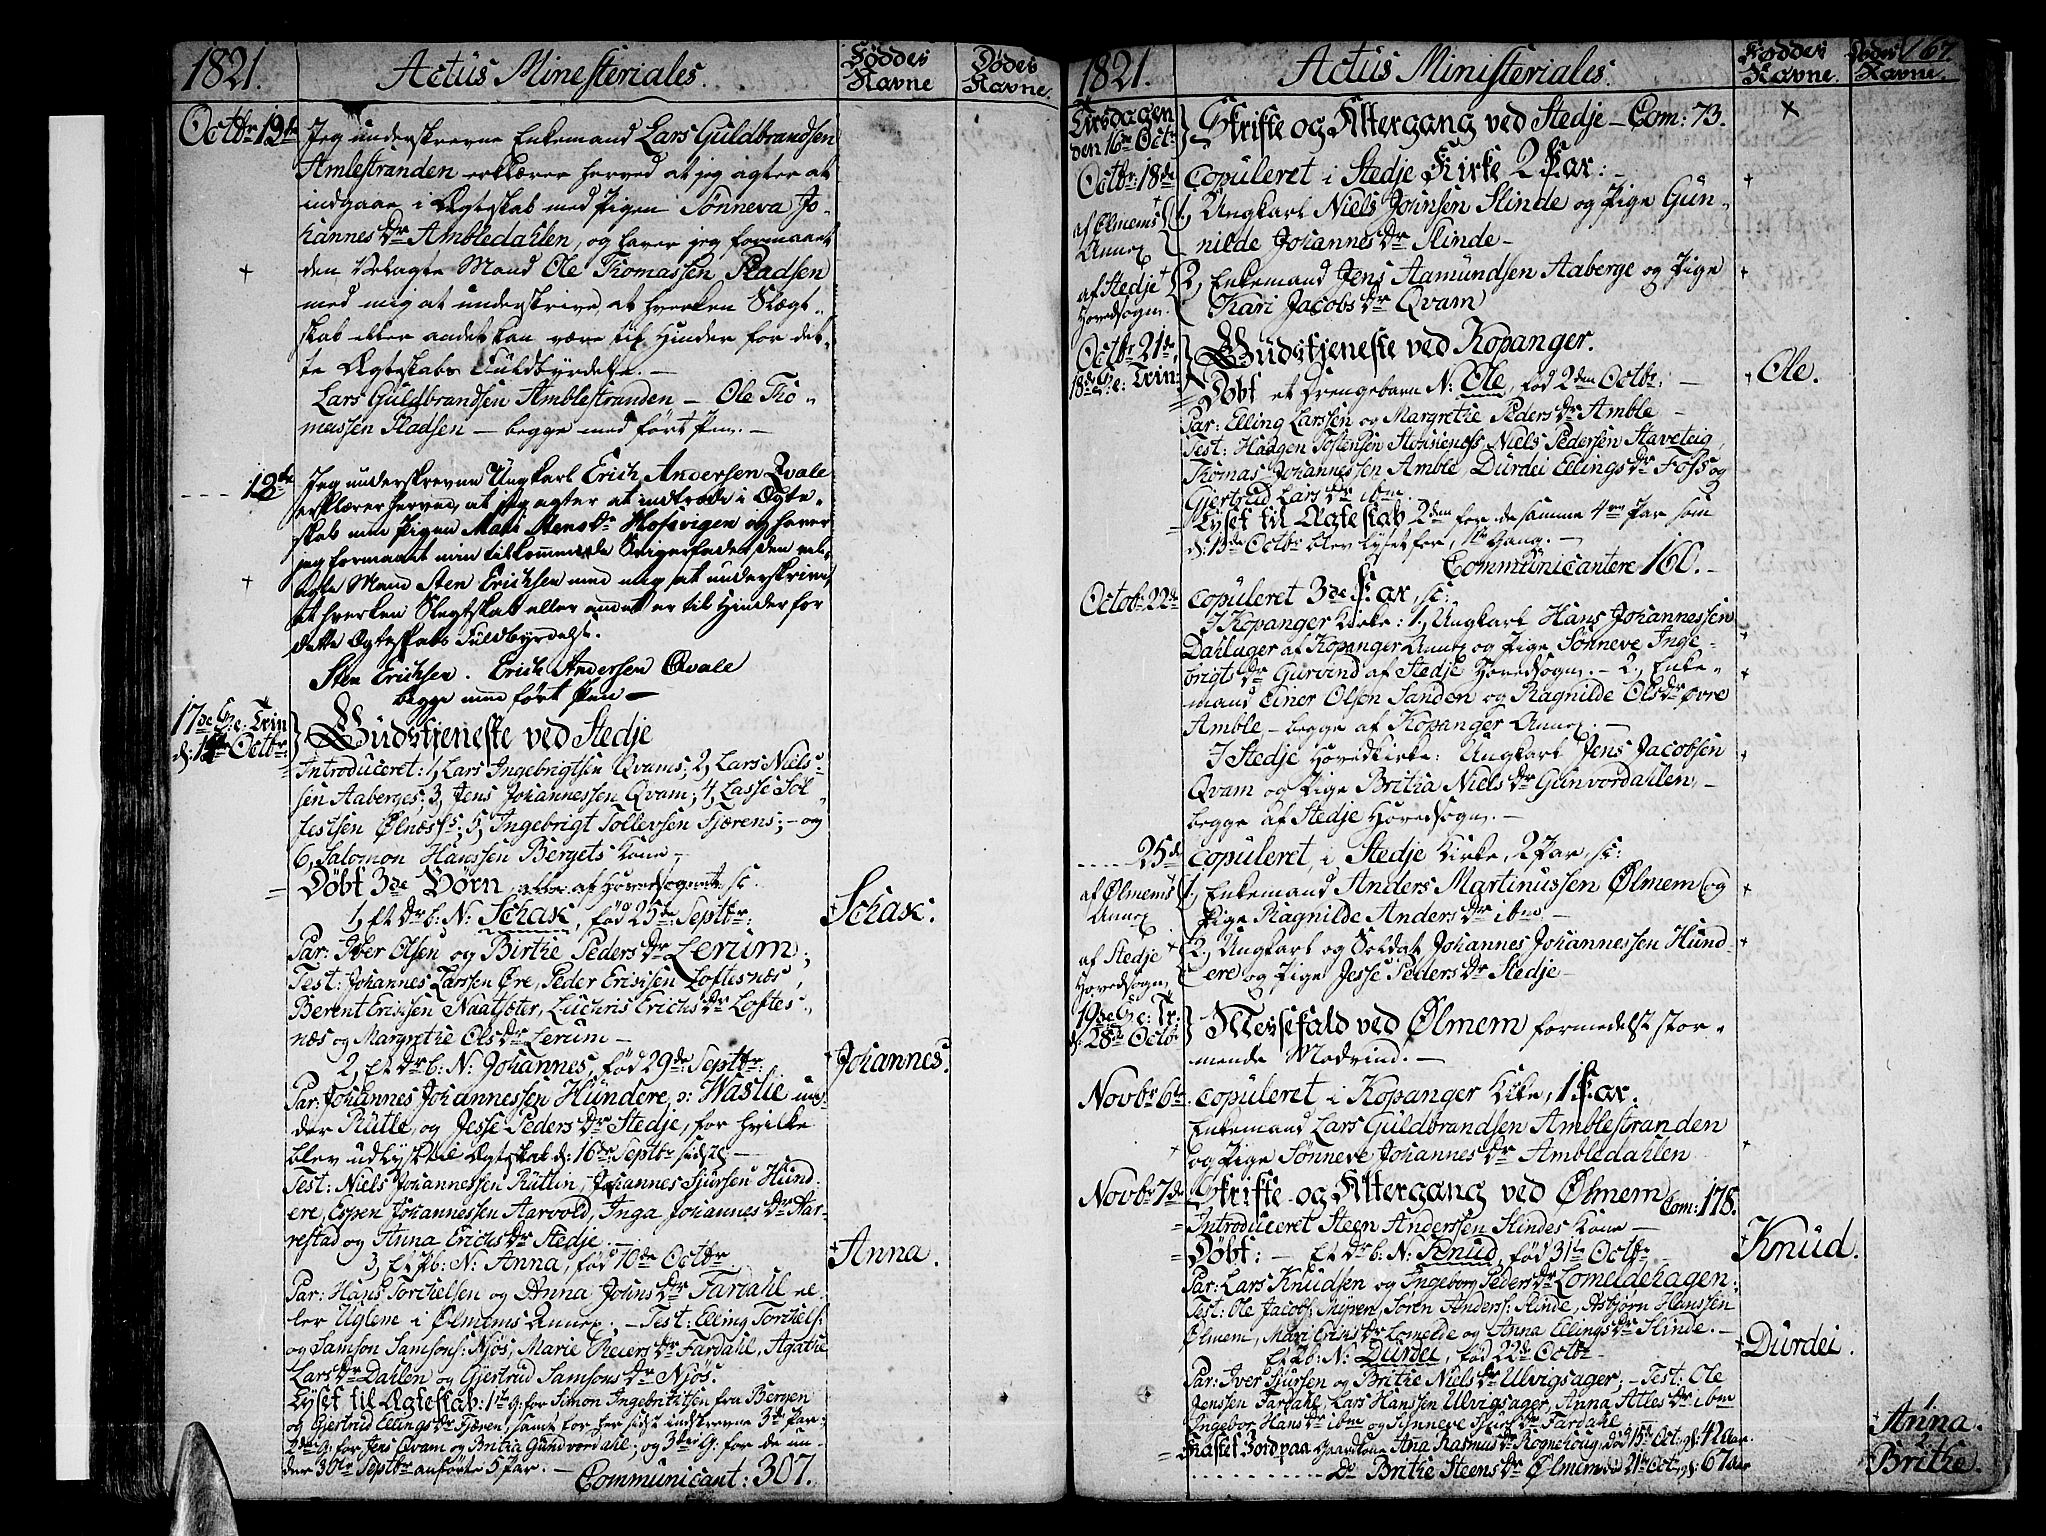 1821. Actüs Ministeriales. Føddes Navne Dødes Navne.
Octbr 12te Jeg underskrevne Enkemand Lars Guldbrandsen
Amlestranden erklærer herved at jeg agter at
indgaae i Ægteskab med Pigen Sönneva Jo-
hannes Dr Ambledahlen, og haver jeg formaaet
den Velagte Mand Ole Thomassen Stadsen
med mig at underskrive, at hverken Slægt-
skab eller andet kan være til Hinder for det-
te Ægteskabs Fuldbyrdelse.-
Lars Guldbrandsen Amblestranden - Ole Tho-
massen Stadsen - begge med ført Pen.-
---- 12te Jeg underskrevne Ungkarl Erich Andersen Qvale
erklærer herved, at jeg agter at indtræde i Ægte-
skab med Pigen Mari Stensdr Hofsvigen og haver
jeg formaaet min tilkommende Svigerfader den vel-
agte Mand Sten Erichsen med mig at underskrive,
at hverken Slegtskab eller andet er til Hinder for
dette Ægteskabs Fuldbyrdelse.
Sten Erichsen. Erich Andersen Qvale
begge med ført Pen -
17de S: e: Trin
d: 14de Octbr Gudstjeneste ved Stedje
Introduceret: 1, Lars Ingebrigtsen Qvams; 2, Lars Niels-
sen Aaberges; 3, Jens Johannessen Qvam; 4, Lasse Sol-
festsen Ølnæss; 5, Ingebrigt Tollevsen Fjærens; - og
6, Salomon Hanssen Bergets Kone -
= Döbt 3de Börn, alle af Hovedsognet sc.
1, Et Dr b: N: Schak, fød 25de Septbr: Schak.
Par: Iver Olsen og Birthe Peders Dr Lerum;
Test: Johannes Larssen Øre, Peder Ericsen Loftesnæs,
Berent Ericsen Naatsæter, Luchris Erichs Dr Loftes-
næs og Margrethe Ols Dr Lerum -
2, Et Dr b: N: Johannes, fød 29de Septbr: Johannes.
Par: Johannes Johannessen Hündere, ɔ: Waslie un-
der Rutle, og Jesse Peders Dr Stedje, for hvilke
blev udlyst til Ægteskab d: 16de Septbr sidstl -
Test: Niels Johannessen Rütlin, Johannes Sjursen Hund-
ere, Espen Johannessen Aarvold, Inga Johannes Dr Aar-
restad og Anna Erichs Dr Stedje.-
3, Et Pb: N: Anna, fød 10de Octbr Anna.
Par: Hans Torchelsen og Anna Johns Dr Fardahl el-
ler Uglene i Ølmems Annex.- Test: Elling Torchels:
og Samson Samsons: Njøs, Marie Reiers Dr Fardahl, Agathe
Lars Dr Dahlen og Gjertrud Samsons Dr Njös.
Lyset til Ægteskab: 1ste G: for Simon Ingebrichtsen fra Bergen
og Gjertrud Ellings Dr Fjæren, samt for her sidst indskrevne 3de Par
2den G: for Jens Qvam og Britha Gundvordahl; og 3die G: for de un-
der 30te Septbr anførte 5 Par. - Communicant: 307.
1821. Actus Ministeriales. Føddes Navne. Dødes Navne. 167.
Tirsdagen
den 16de Octbr Skrifte og Altergang ved Stedje - Com: 73.
Octbr: 18de Copuleret i Stedje Kirke 2 Par:-
af Ølmems
Annex 1, Ungkarl Niels Johnsen Slinde og Pige Gun-
nilde Johannes Dr Slinde -
af Stedje
Hovedsogn. 2, Enkemand Jens Aamündsen Aaberge og Pige
Kari Jacobs Dr Qvam
Octbr 21de
18de S: e: Trin: Gudstjeneste ved Kopanger.
Döbt et Drengebarn N: Ole, fød 2den Octbr: - Ole.
Par: Elling Larssen og Margrethe Peders Dr Amble -
Test: Haagen Tostensen Niels Pedersen Staveteig,
Thomas Johannessen Amble, Durdei Ellings Dr Foss og
Gjertrud Lars Dr ibm.
= Lyset til Ægteskab 2den for de samme 4re Par som
d: 15de Octbr blev lyset for, 1ste Gang.-
Communicantere 160.-
Octob: 22de Copuleret 3de Par, sc:
I Kopanger Kirke: 1, Ungkarl Hans Johannessen
Dahlager af Kopanger Annex og Pige Sönneve Inge-
brigts Dr Gurvind af Stedje Hovedsogn.- 2, Enke-
mand Einer Olsen Sanden og Ragnilde Ols Dr Øvre
Amble - begge af Kopanger Annex.-
I Stedje Hovedkirke: Ungkarl Jens Jacobsen
Qvam og Pige Britha Niels Dr Gunvordahlen,-
begge af Stedje Hovedsogn.-
---- 25de Copuleret, i Stedje Kirke, 2 Par, sc:
af Ølmems
Annex 1, Enkemand Anders Martinussen Ølmem og
Pige Ragnilde Anders Dr ibm -
af Stedje
Hovedsogn 2, Ungkarl og Soldat Johannes Johannessen Hund-
ere og Pige Jesse Peders Dr Stedje -
19de S: e: Tr:
d: 28de Octbr Messefald ved Ølmem formedelst stor-
mende Modvind.-
Novbr 6te Copuleret i Kopanger Kirke, 1 Par.
Enkemand Lars Guldbrandsen Amblestranden
og Pige Sönneve Johannes Dr Ambledahlen
Novbr 7de Skrifte og Altergang ved Ølmem Com: 178.
= Introduceret Steen Anderssen Slindes Kone -
= Döbt: - Et Dr b: N: Knud, fød 31te Octbr - Knüd.
Par: Lars Knudsen og Ingeborg Peders Dr Lomeldehagen.
Test: Ole Jacobs: Myren, Soren Anders: Slinde, Asbjørn Hanssen
Ølmem, Mari Erichs Dr Lomelde og Anna Ellings Dr Slinde.-
Et Pb: N: Durdei, fød 22de Octbr - Dürdei.
Par: Iver Sjursen og Brithe Niels Dr Ulvigsager; - Test: Ole
Jenssen Fardahl, Lars Hanssen Ulvigsager, Anna Atles Dr ibm
Ingebor Hans Dr ibm og Synneve Sjurs Dr Fardahl
= Kastet Jord paa Gaardkone Anna Rasmus Dr Rognehoug, død 15de Oct, gl: 42 Aar. 1 Anna.
---- Do Brithe Steens Dr Ølmem, død 21de Oct, gl: 67 Aar 2 Brithe.